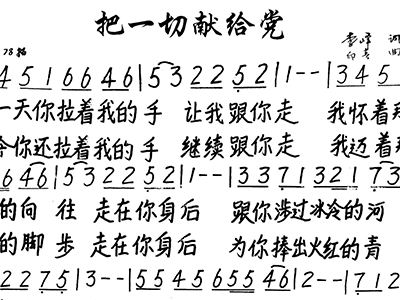 把一切献给党
78拍
词
曲
4 5 1 6 6 4 6 | 5 3 2 2 5 2 | 1 - - | 3 4 5
一天你拉着我的手 让我跟你走 我怀着
你还拉着我的手 继续跟你走 我迈着
6 4 6 | 5 3 2 2 5 2 | 1 - - | 3 3 7 1 3 2 1 7 3
的向 往 走在你身后 跟你涉过冰冷的河
的脚 步 走在你身后 为你捧出火红的青
2 2 7 5 | 3 - - | 5 5 4 5 6 5 5 4 6 | 2 - - | 7 1 2